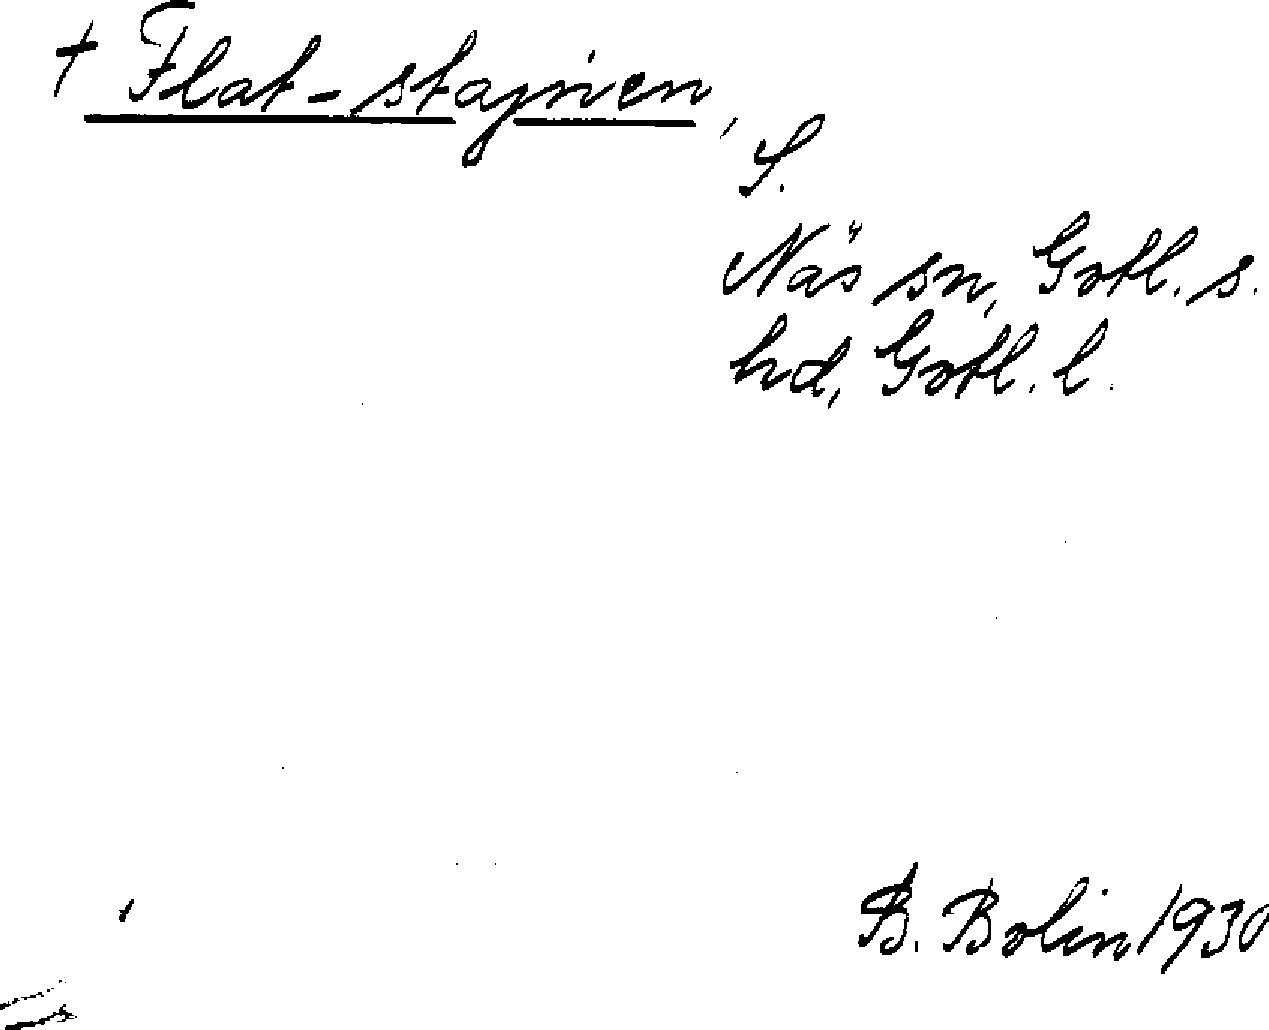 † Flat-stajnen,
S.
Näs sn, Gotl. s.
hd, Gotl. l.
B. Bolin 1930